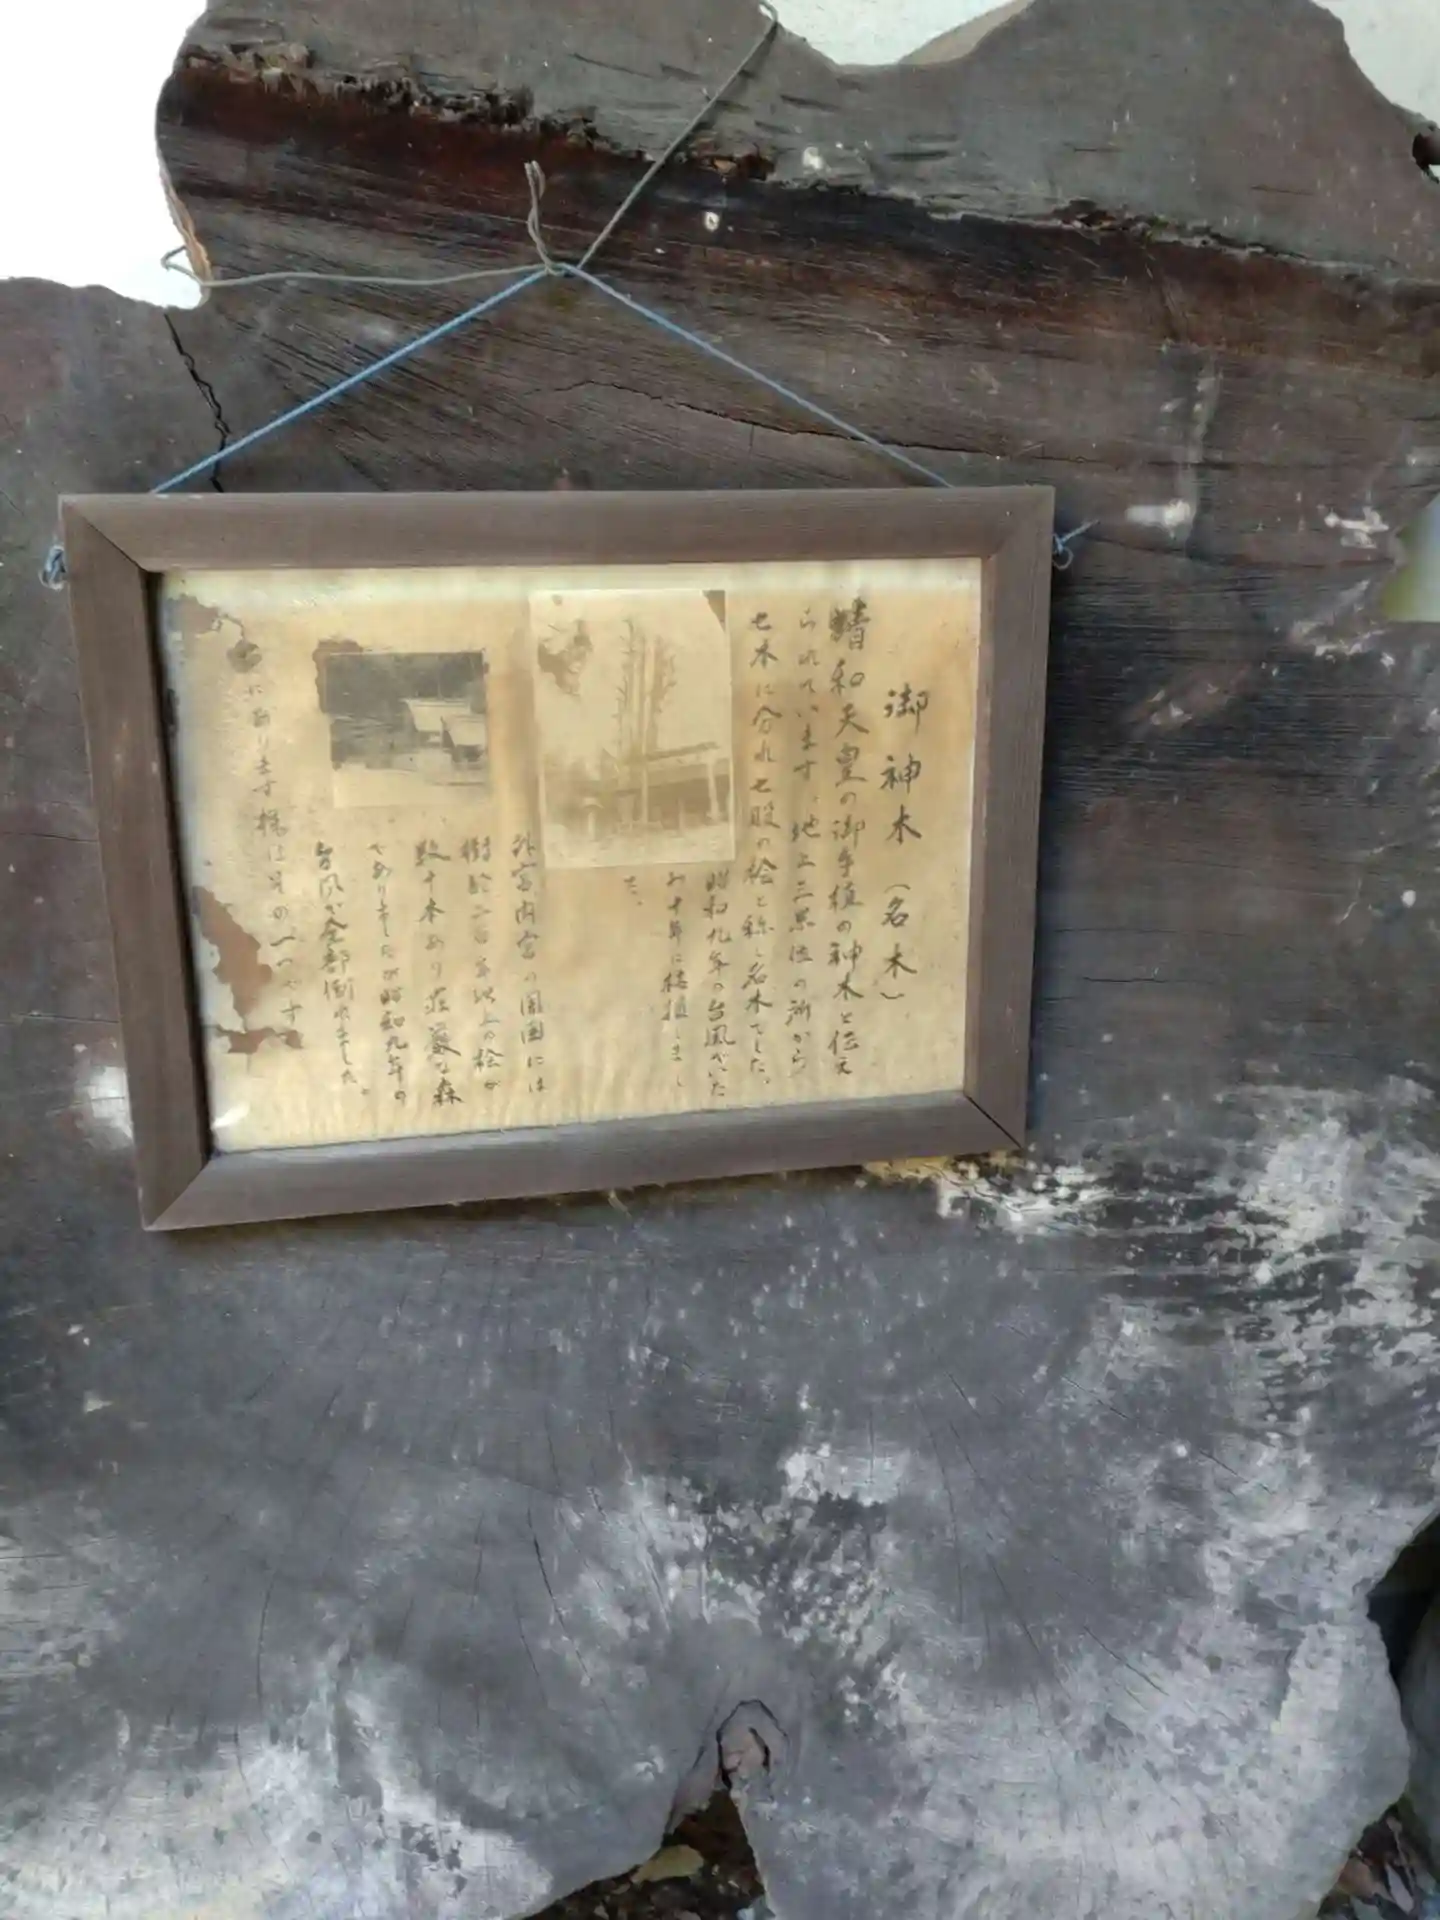 御神木(名木)
和天皇の御手植の神木と伝え
られています。地上三米位の所から
七本に分れ七股の桧と称し名木でした。
昭和九年の台風でいた
み十年に植しまし
た。
外宮内宮の周囲には
樹齢二百年以上の桧が
数十本あり荘厳な森
でありましたが昭和九年の
台風で全部倒れました。
にあります橋は月の一つです